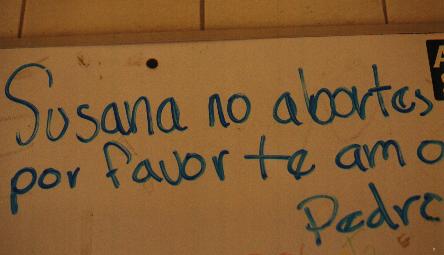 Susana no abortes
por favor te amo
Pedro